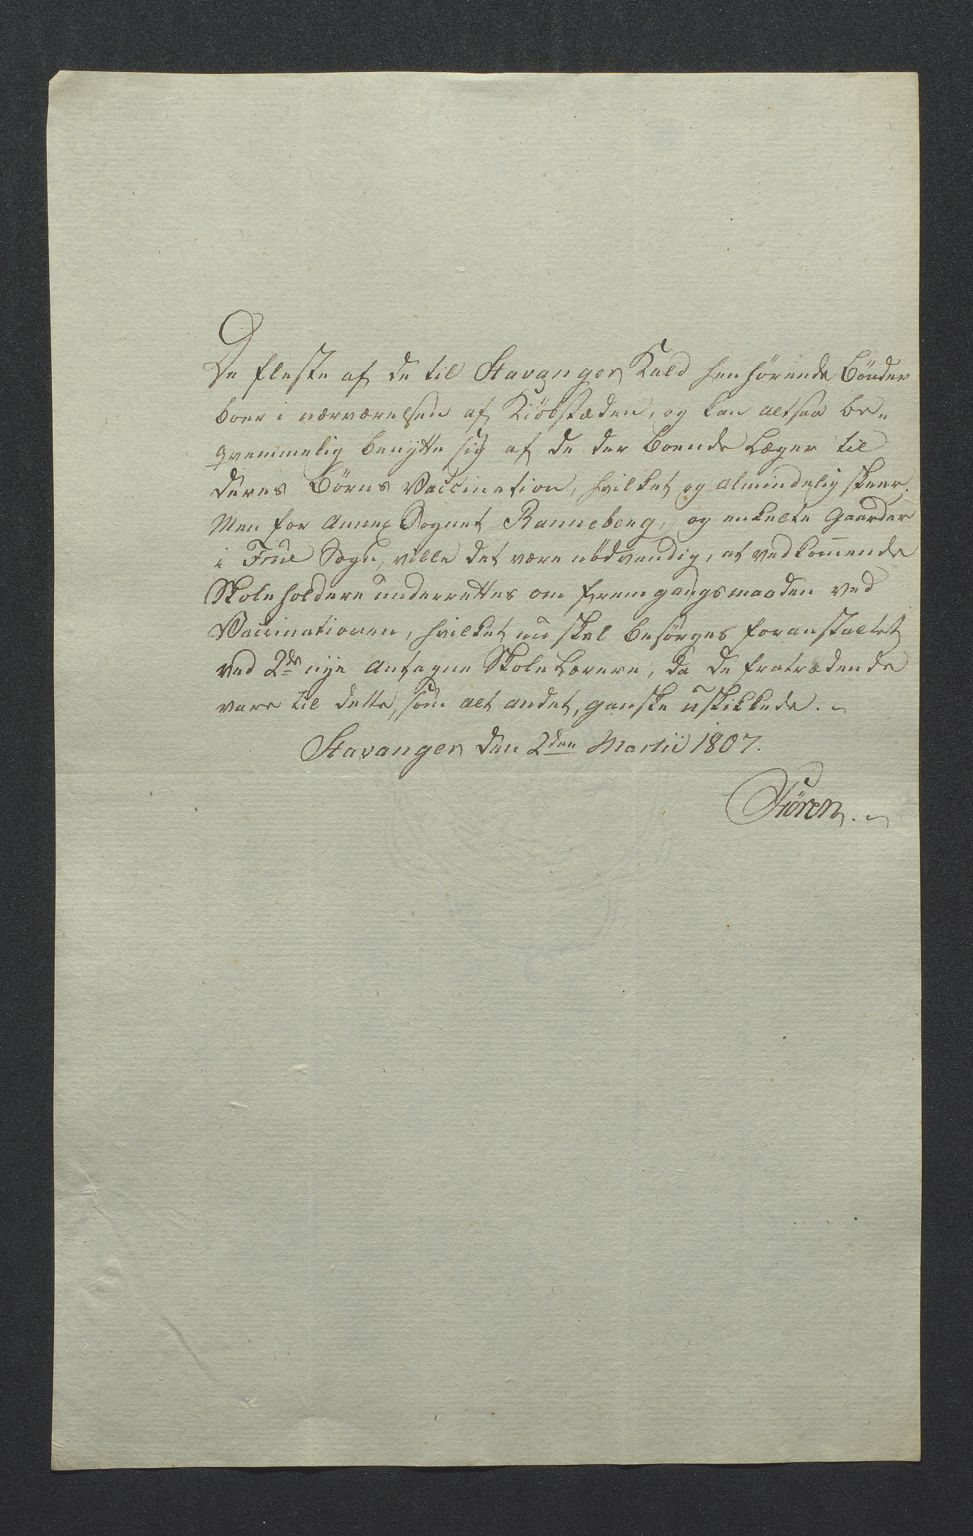 De fleste af de til Stavanger Kald henhørende Bönder
boer i nærværelsen af Kiöbstæden, og kan altsaa be„
qvemmelig benytte sig af de der boende Læger til
deres Börns Vaccination, hvilket og almindelig skeer.
Men for Annex Sognet Ranneberg, og enkelte Gaarder
i Frue Sogn, ville det være nödvendig, at vedkommende
Skoleholdere underrettes om fremgangsmaaden ved
Vaccinationen, hvilket nu skal besörges foranstaltet
ved 2de nye antagne Skole Lærere, da de fratrædende
vare til dette, som alt andet, ganske uskikkede.
Stavanger den 2den Martii 1807.
Sören.